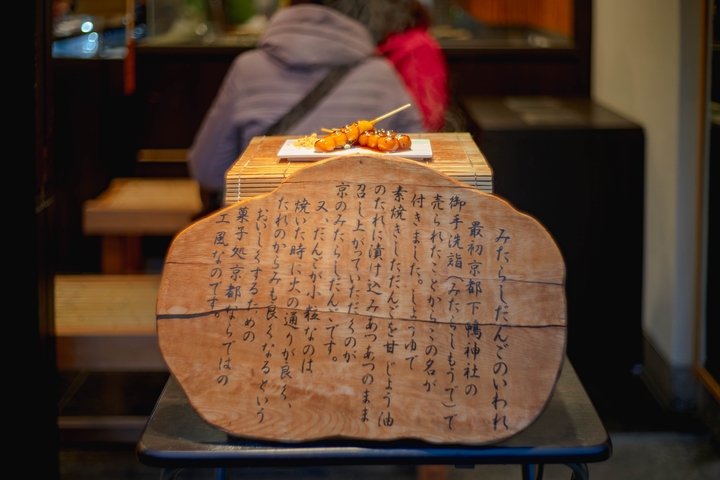 みたらしだんごのいわれ
最初京都下鴨神社の
御手洗詣(みたらしもうで)で
売られたことからこの名が
付きました。しょうゆで
素焼きしただんごを甘じょう油
のたれに漬け込みあつあつのまま
召し上がっていただくのが
京のみたらしだんごです。
又、だんごが小粒なのは
焼いた時に火の通りが良く、
たれのからみも良くなるという
おいしくするための
菓子処京都ならではの
工風なのです。